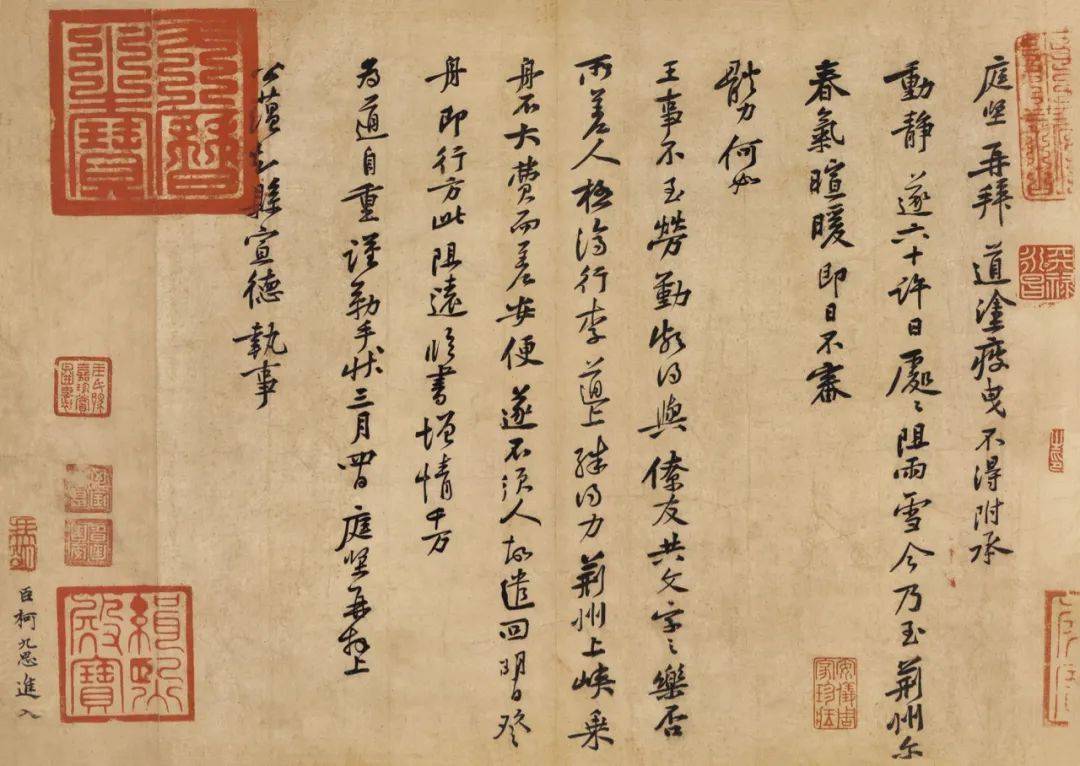 庭堅再拜 道塗疲曳不得附承
動靜 遂六十許日處〻阻雨雪今乃至荊州尔
春氣暄暖即日不審
體力何如
王事不至勞勤頗得與僚友共文字之樂否
所差人極濟行李道上殊得力荊州上峽乘
舟不大費而差安便遂不須人故遣回明日癸
舟即行方此阻遠臨書增情千万
為道自重謹勒手狀三月四日 庭堅再拜上
公蘊知縣宣德執事
天禄
安儀周家珍藏
臣柯九思進入